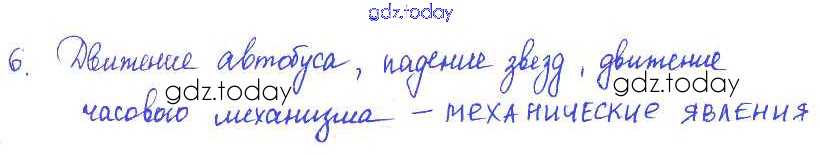 gdz.today
6. Движение автобуса, падение звезд, движение
gdz.today
gdz.today
часового механизма – МЕХАНИЧЕСКИЕ ЯВЛЕНИЯ